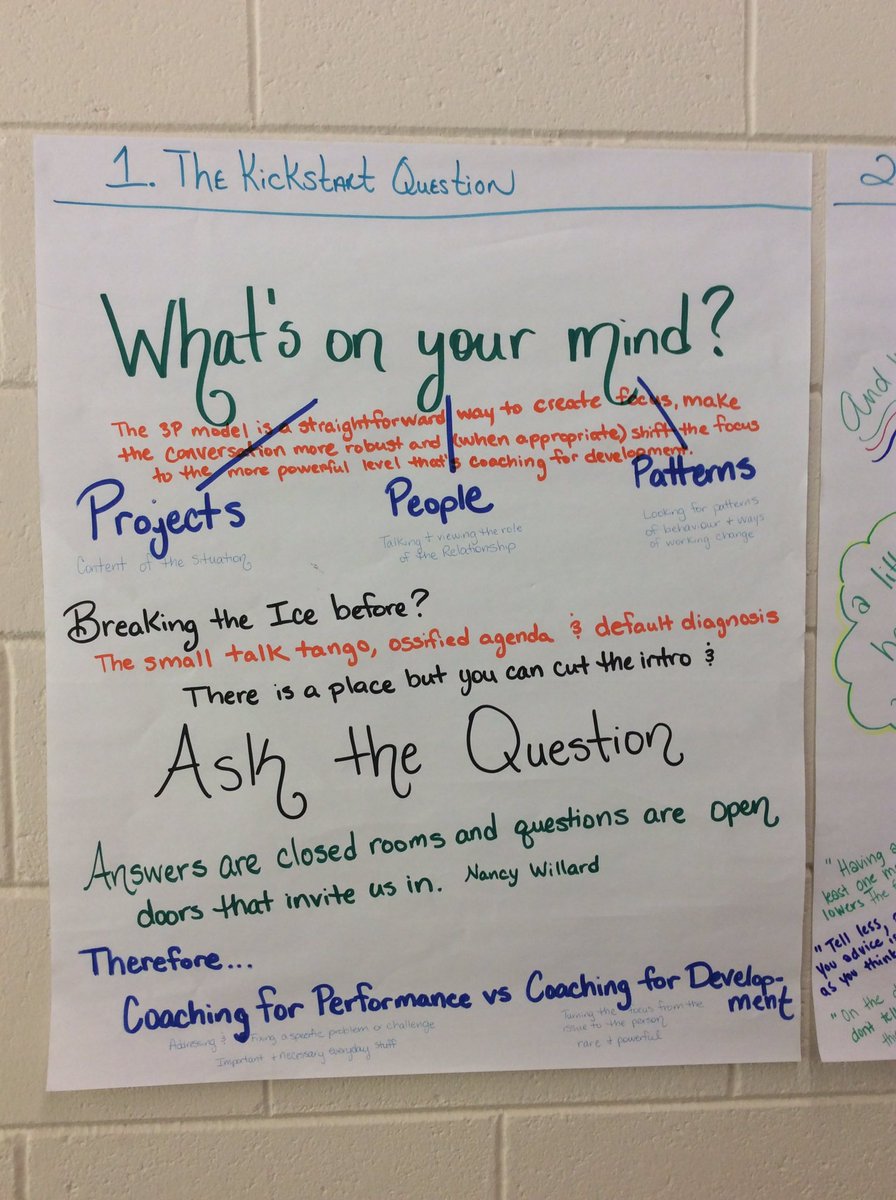 1. The Kickstart Question
What's on your mind?
The 3P model is a straightforward way to create focus, make
the conversation more robust and (when appropriate) shift the focus
to the more powerful level that's coaching for development.
Projects
Content of the Situation
People
Talking + viewing the role
of the Relationship
Patterns
Looking for patterns
of behaviour + ways
of working change
Breaking the Ice before?
The small talk tango, ossified agenda & default diagnosis
There is a place but you can cut the intro &
Ask the Question
Answers are closed rooms and questions are open
doors that invite us in. Nancy Willard
Therefore...
Coaching for Performance vs Coaching for Develop-
ment
Addressing & Fixing a specific problem or challenge
Important + necessary everyday stuff
Turning the focus from the
issue to the person
rare + powerful
2
And
a
"Having
least one
lowers the
"Tell less,
you advice is
as you think
"On the
dont tell